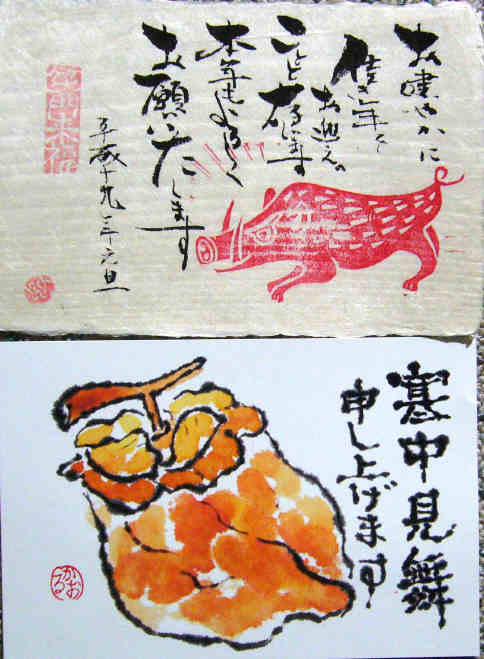 お健やかに
佳き年を
お迎えの
ことと存じます
本年もよろしく
お願いいたします
平成十九年元旦
寒中見舞
申し上げます
かおる